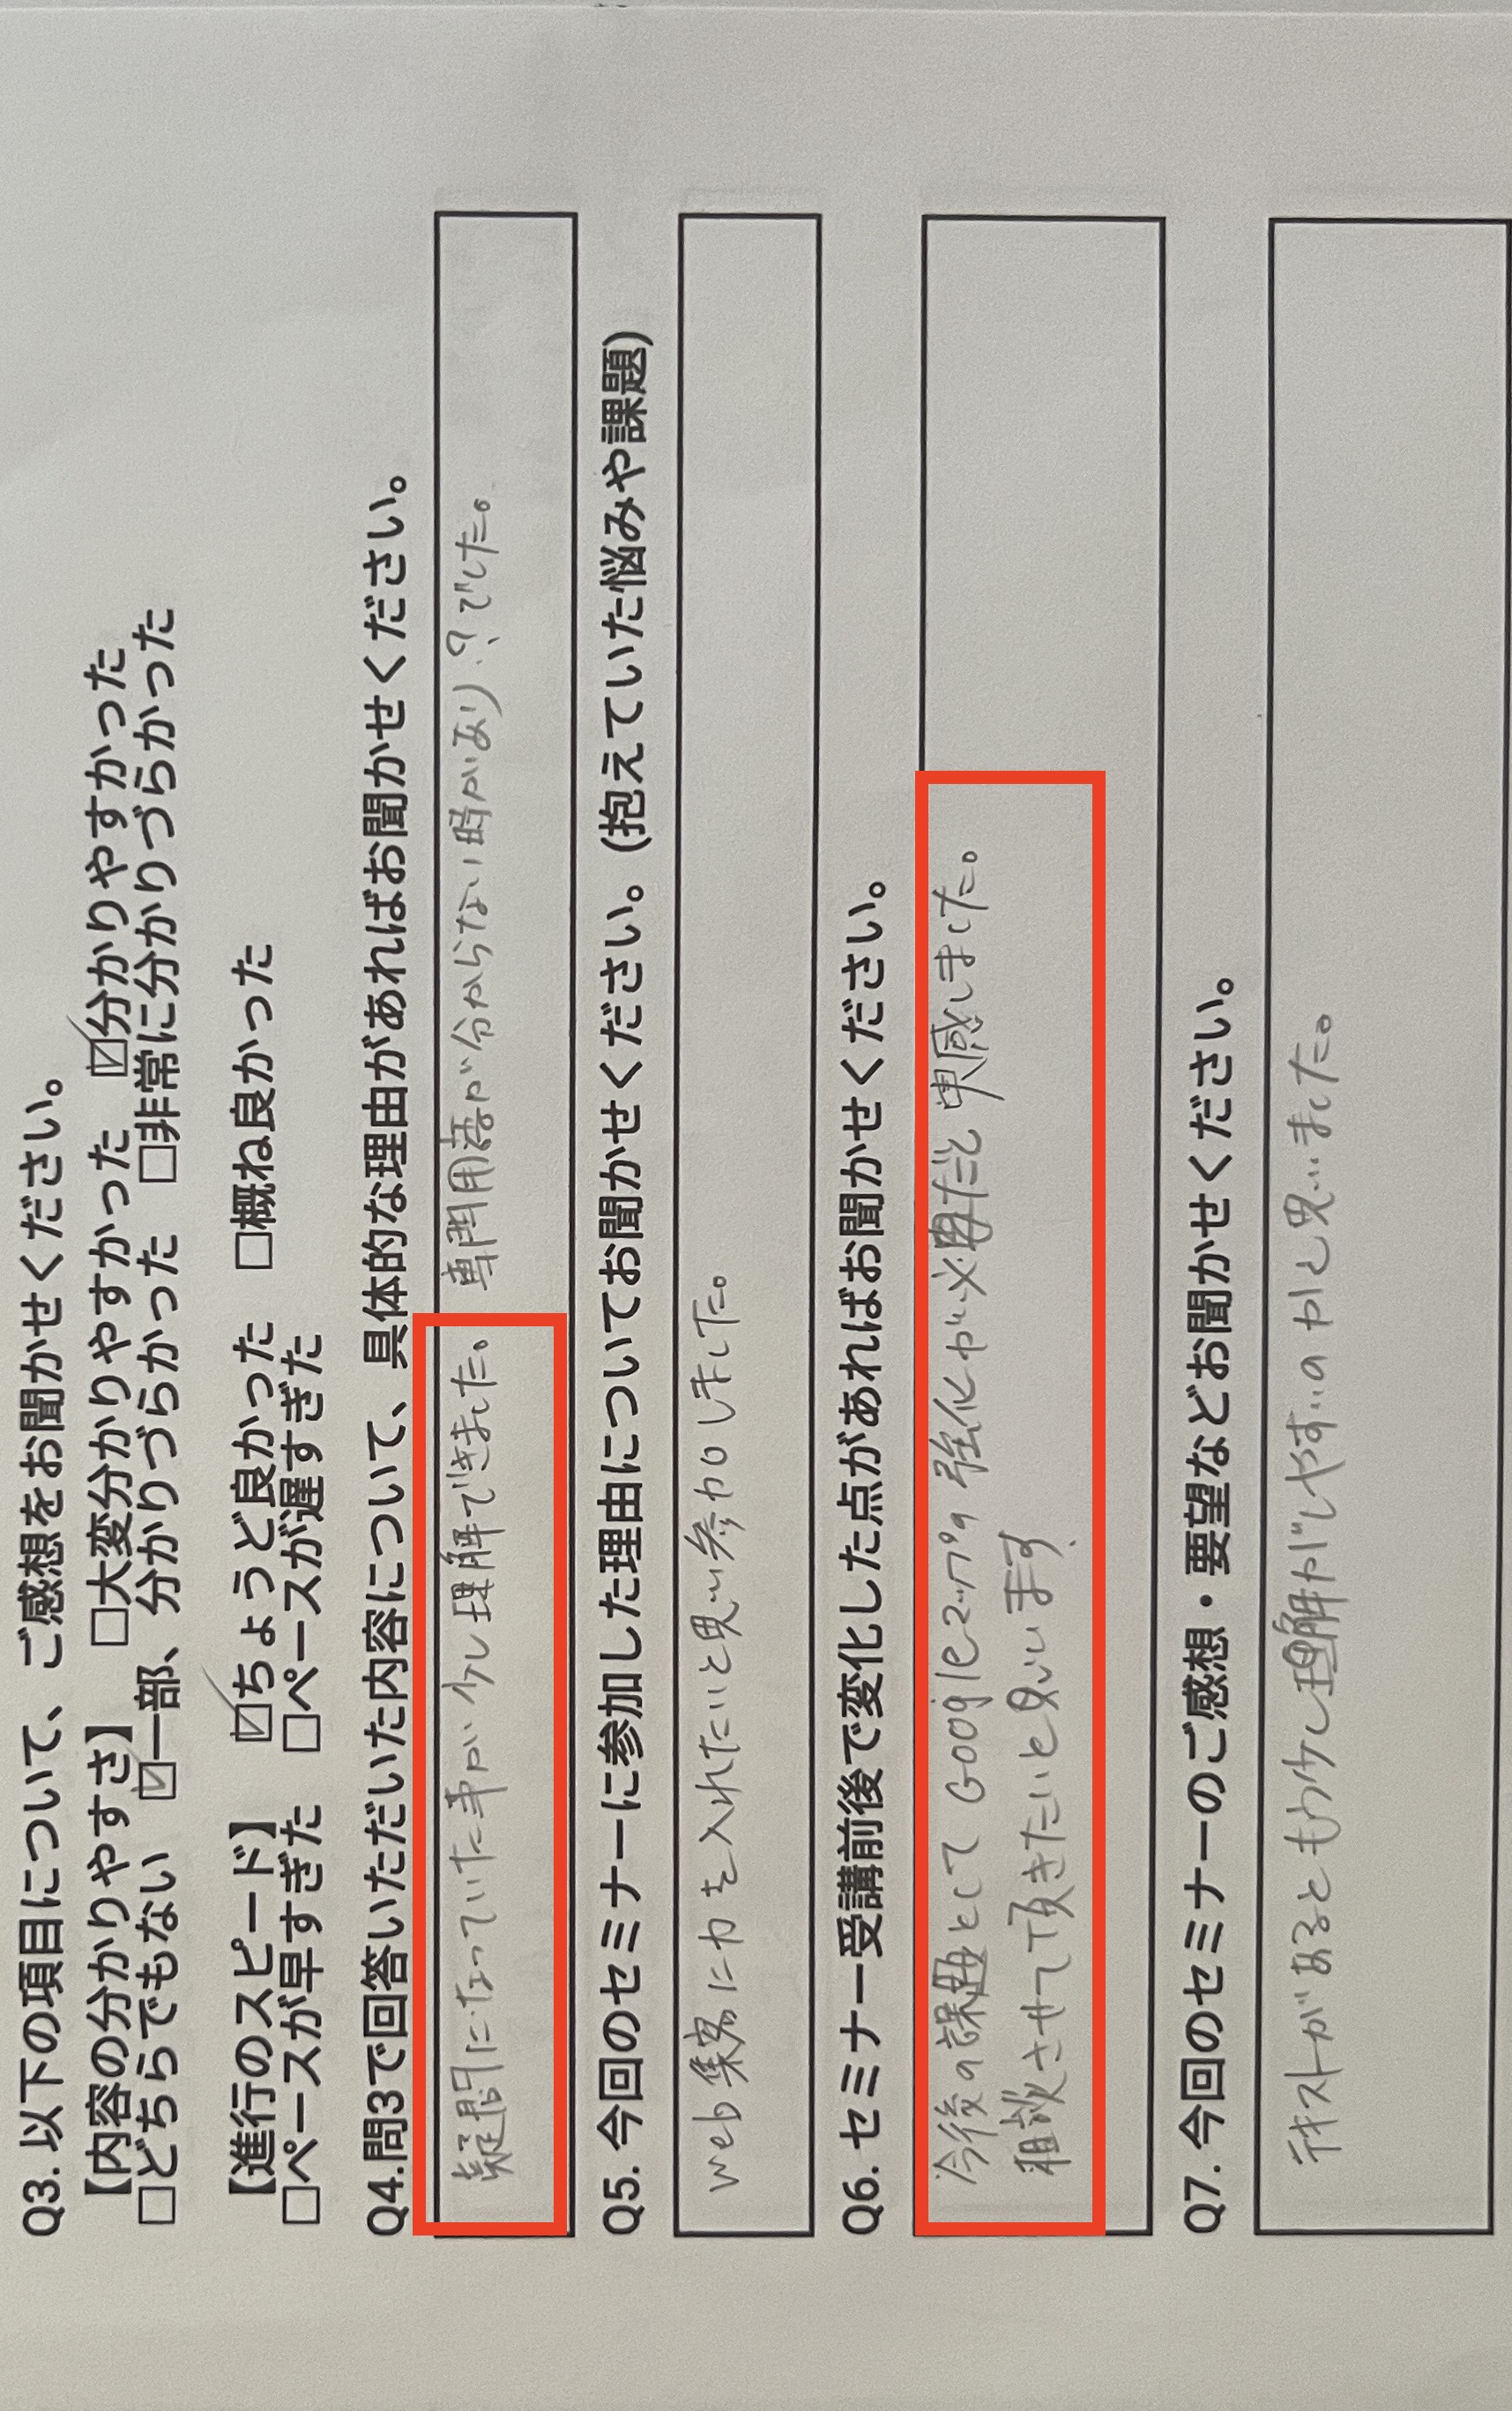 Q3. 以下の項目について、ご感想をお聞かせください。
【内容の分かりやすさ】 □大変分かりやすかった ☑分かりやすかった
□どちらでもない ☑一部、分かりづらかった □非常に分かりづらかった
【進行のスピード】 ☑ちょうど良かった □概ね良かった
□ペースが早すぎた □ペースが遅すぎた
Q4.問3で回答いただいた内容について、具体的な理由があればお聞かせください。
疑問になっていた事が少し理解できました。 専門用語が分からない時があり、?でした。
Q5. 今回のセミナーに参加した理由についてお聞かせください。(抱えていた悩みや課題)
web集客に力を入れたいと思い参加しました。
Q6. セミナー受講前後で変化した点があればお聞かせください。
今後の課題として Googleマップの強化が必要だと実感しました。
相談させて頂きたいと思います
Q7. 今回のセミナーのご感想・要望などお聞かせください。
テキストがあるともう少し理解がしやすいのかと思いました。